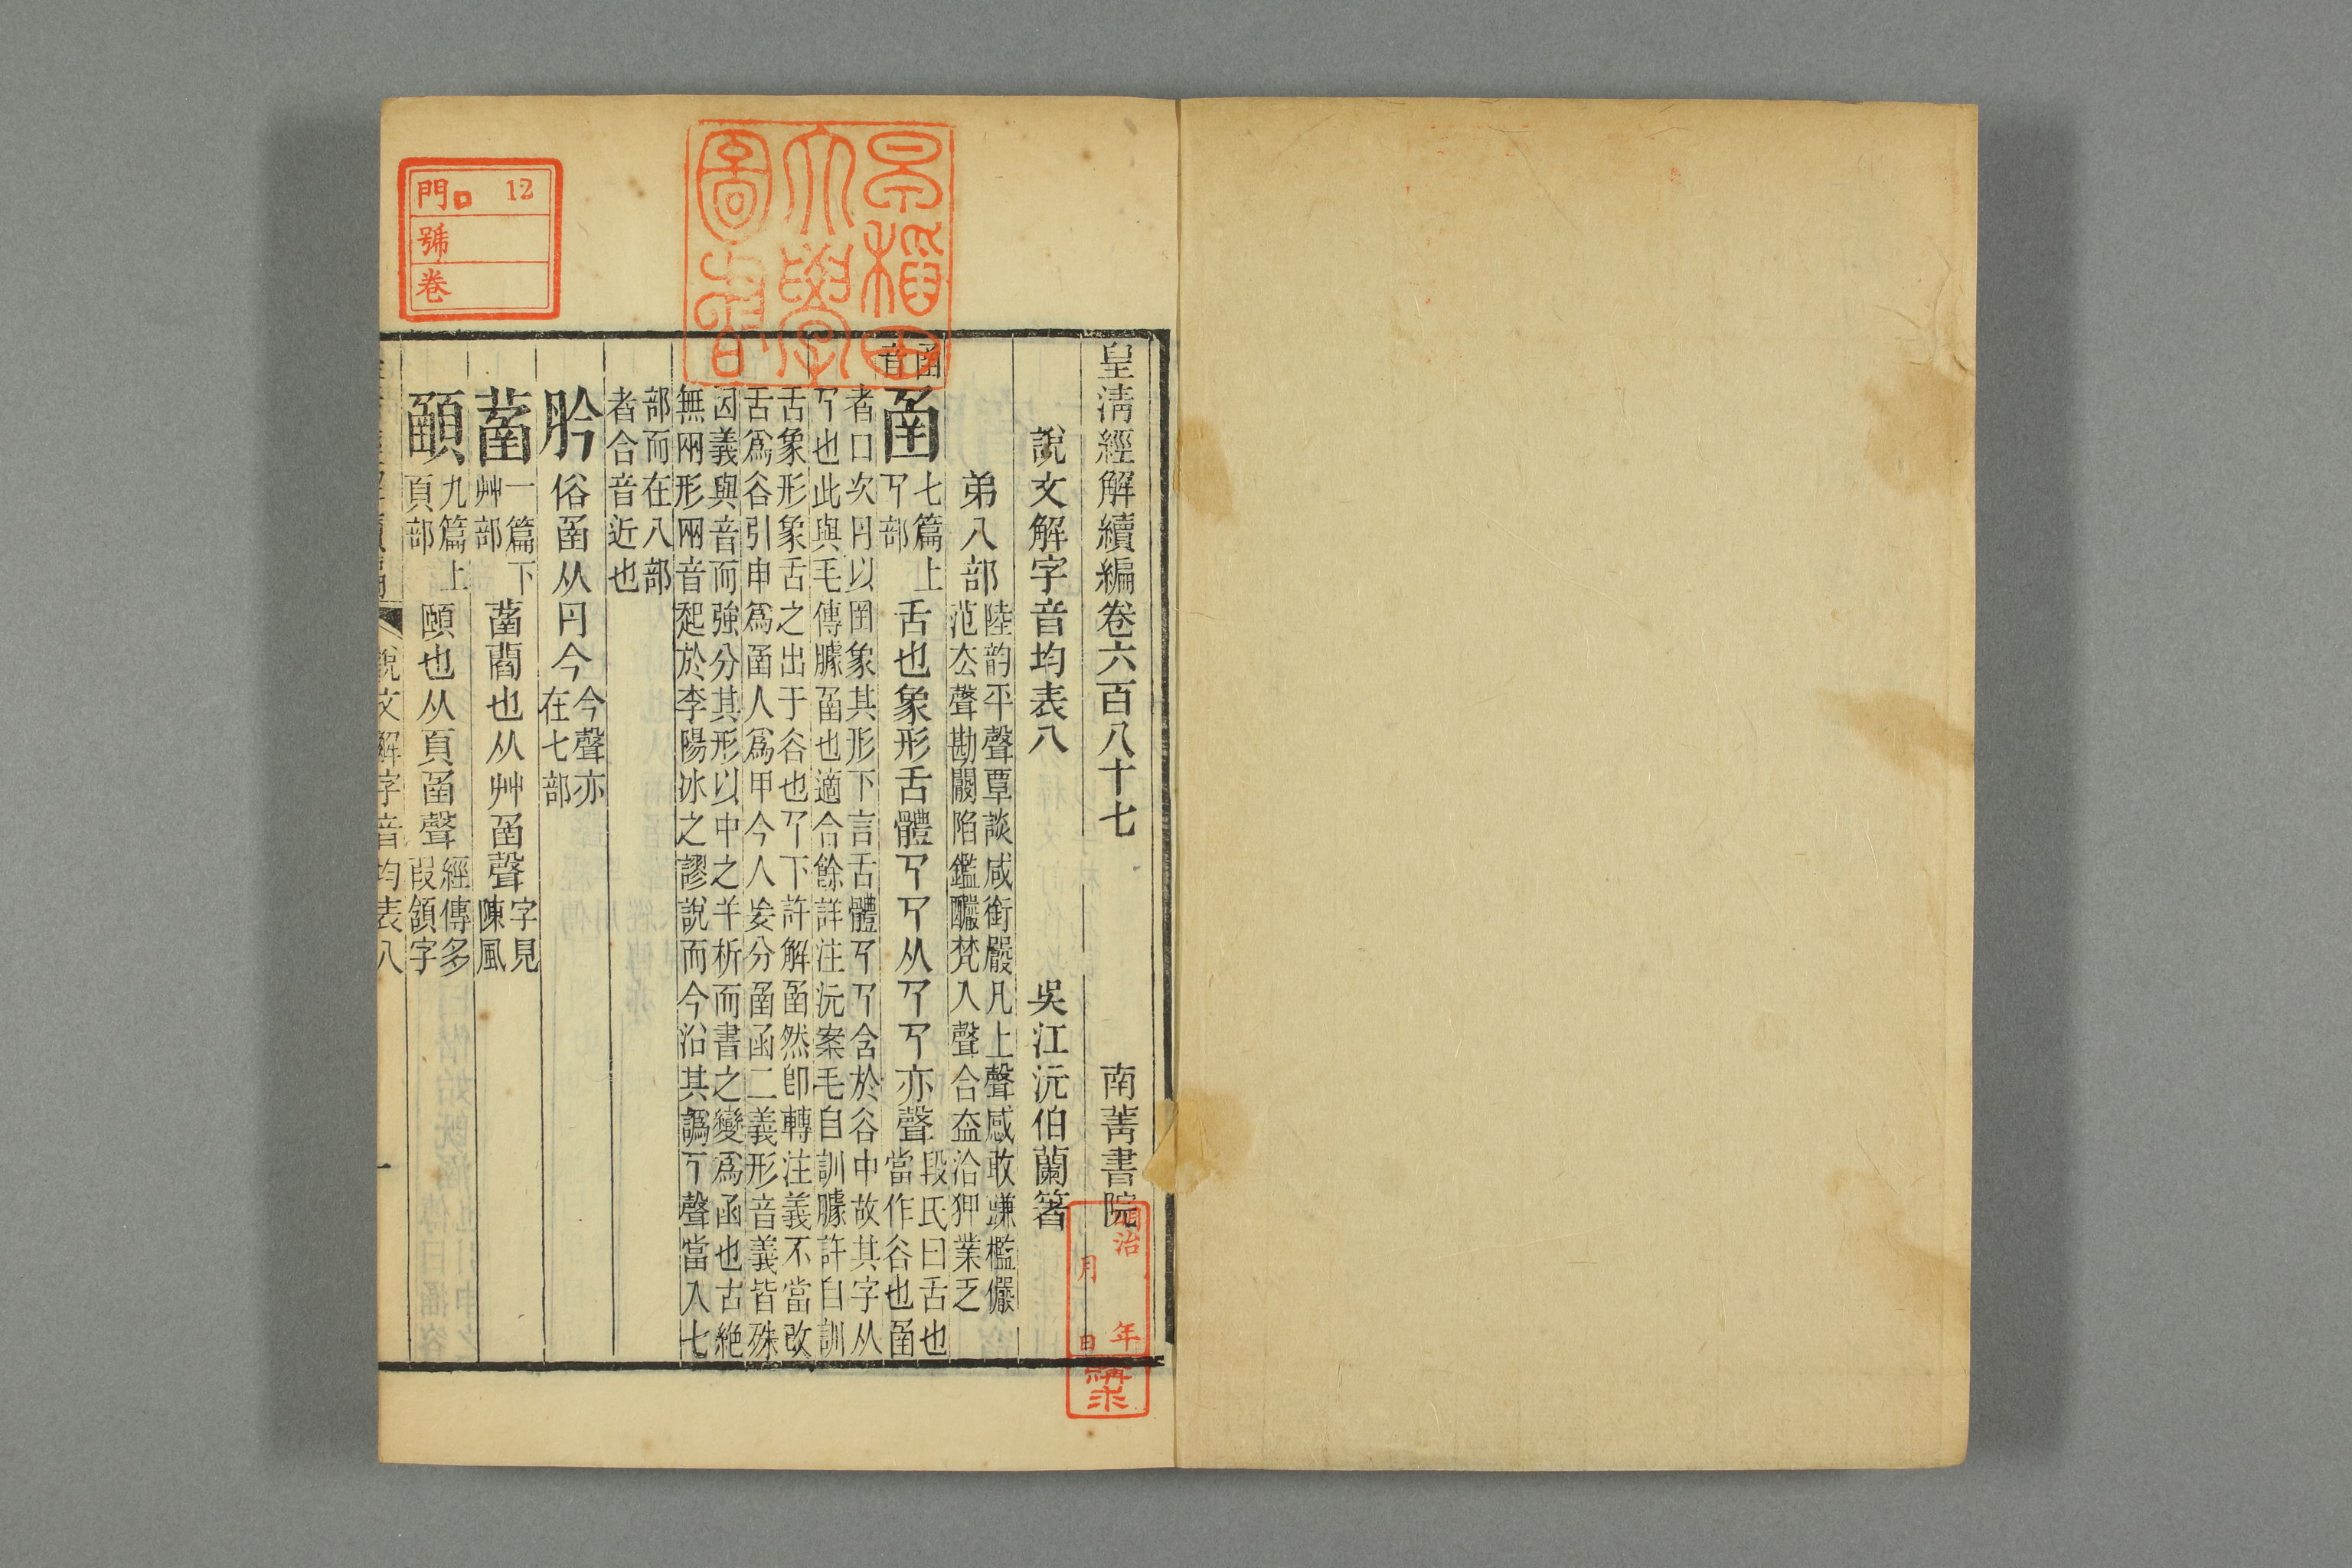 皇清經解續編卷六百八十七 南菁書院
說文解字音均表八 吳江沅伯蘭箸
弟八部 陸韵平聲覃談咸銜嚴凡上聲感敢豏檻儼
范厺聲勘闞陷鑑釅梵入聲合盍洽狎業乏
圅音
圅 七篇上
𢎘部
舌也象形舌體𢎘𢎘从𢎘𢎘亦聲 段氏曰舌也
當作谷也圅
者口次冃以圉象其形下言舌體𢎘𢎘含於谷中故其字从
𢎘也此與毛傳臄圅也適合餘詳注沅案毛自訓臄許自訓
舌象形象舌之出于谷也𢎘下許解圅然卽轉注義不當改
舌爲谷引申爲圅人爲甲今人妄分圅函二義形音義皆殊
因義與音而強分其形以中之𢆉析而書之變爲函也古絶
無兩形兩音起於李陽冰之謬說而今沿其譌𢎘聲當入七
部而在八部
者合音近也
肣 俗圅从冃今 今聲亦
在七部
菡 一篇下
艸部
菡藺也从艸圅聲 字見
陳風
顄 九篇上
頁部
頤也从頁圅聲 經傳多
叚頷字
說文解字音均表八
一
早稻田
大學
圖書
門ロ 12
號
卷
明治 年
月 日
購求